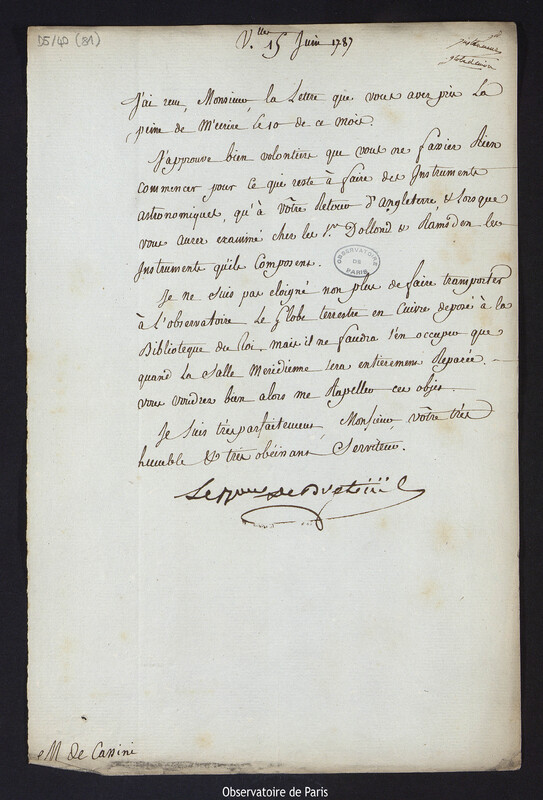 D5/40 (81)
V.lles 15 Juin 1787
J'ai reçu, Monsieur, la Lettre que vous avez pris la
peine de m'ecrire le 10 de ce mois.
J'approuve bien volontiers que vous ne fassiez Rien
commencer pour ce qui reste à faire des Instruments
astronomiques, qu'à vôtre Retour d'Angleterre, & lorsque
vous aurez examiné chez les Srs Dollond & Ramsden les
Instruments qu'ils Composent.
OBSERVATOIRE
DE
PARIS
Je ne suis pas eloigné non plus de faire transporter
à l'observatoire le Globe terrestre en Cuivre deposé à la
Biblioteque du Roi, mais il ne faudra s'en occuper que
quand la Salle Meridienne sera entierement Reparée.
vous voudrez bien alors me Rapeller cet objet.
Je suis très parfaitement, Monsieur, vôtre très
humble & très obéissant Serviteur.
Le Bon de Breteüil
M De Cassini
Observatoire de Paris